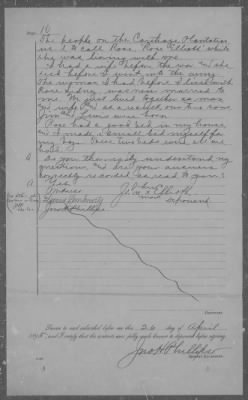 Page 16
The people on the Carthage Plantation
use to call Rose, Rose Elliott while
she was living with me.
I had a wife before the war and she
died before I went into the army.
The woman I had before I lived with
Rose Sydney, was never married to
me. We just lived together as man
and wife and as a result our two sons
Jim and Lewis were born.
Rose had a good bed in my house
and I made a small bed myself for
my boy. These two beds were all we
had.
Q Do you thoroughly understand my
questions, and are your answers
correctly recorded as read to you?
A Yes.
Witness
John x Elliott
his
mark
Deponent
Jno H Phillips
Sworn to and subscribed before me this 26 day of April
and I certify that the contents were fully made known to deponent before signing.
Jno H Phillips
Special Examiner.